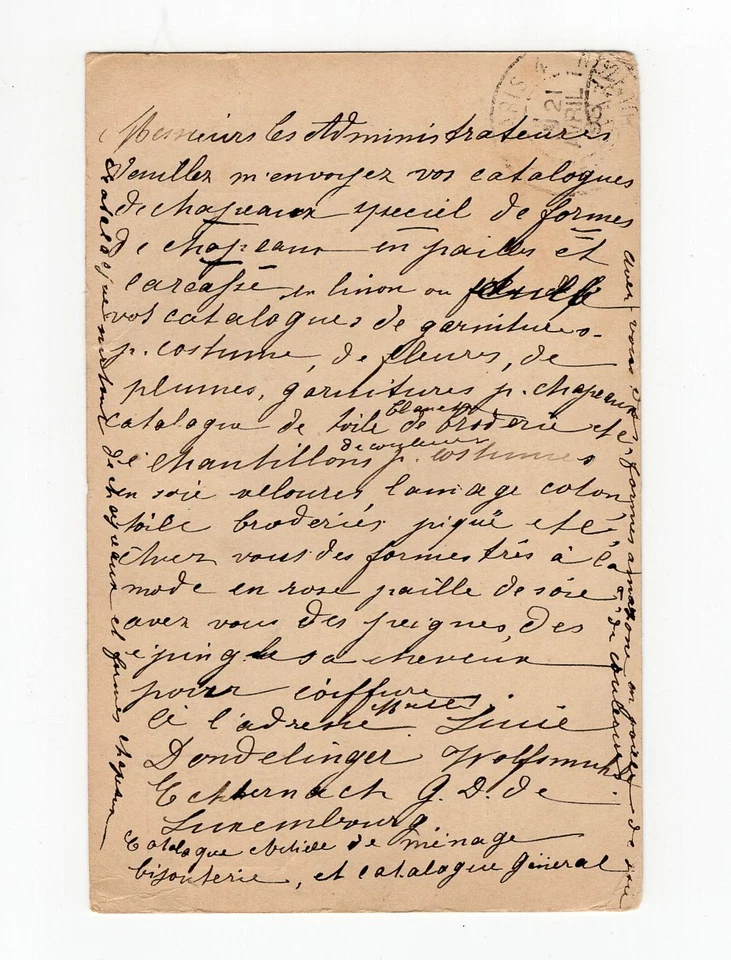 PARIS
21
AVRIL
Messieurs les Administrateurs
Veuillez m'envoyez vos catalogues
de chapeaux speciel de formes
de chapeaux en pailles et
carcasse en linon ou
vos catalogues de garnitures
p. costume, de fleurs, de
plumes, garnitures p. chapeaux
catalogue de toile de broderie etc
d'echantillons p. costumes
de couleur
en soie veloures lainage coton,
toile broderiés piqué etc
avez vous des formes trés à la
mode en rose paille de soie
avez vous des peignes, des
epingles a cheveux
pour coiffure
à l'adresse Lucie
Dondelinger
Echternach G. D. de
Luxembourg
Catalogue de ménage
bijouterie, et catalogue général
catalogue surtout de chapeaux et formes chapeau
avez vous des formes amazone en paille de soie
de couleur